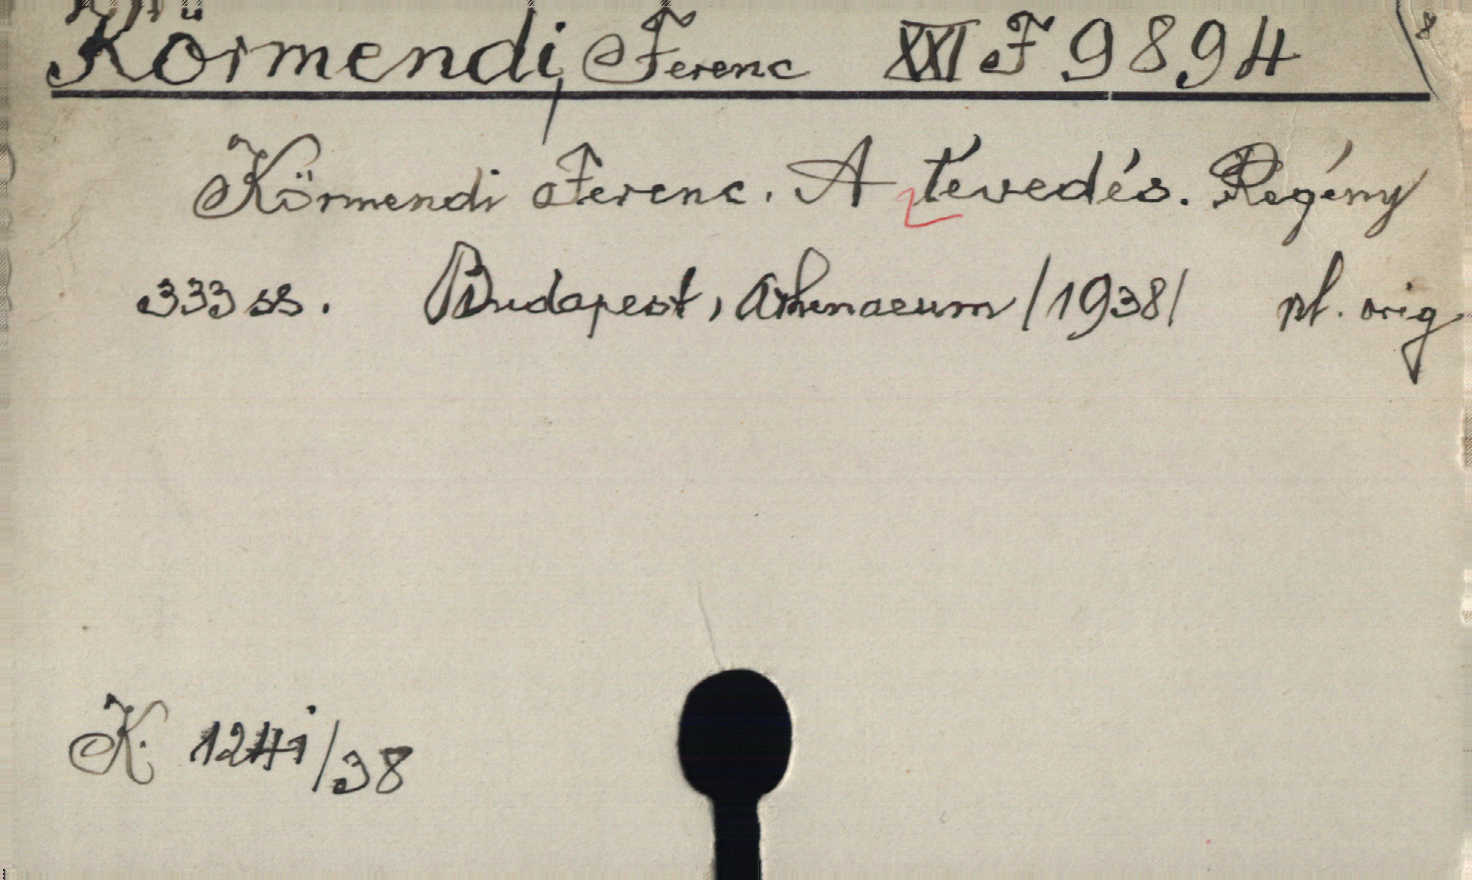 Körmendi, Ferenc XXI F 9894
Körmendi Ferenc. A tévedés. Regény
333 ss. Budapest, Athenaeum /1938/ pl. orig
K. 1241/38